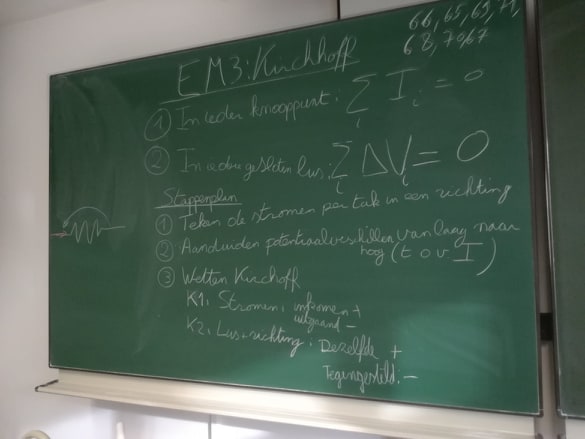 66, 65, 69, 71,
68, 70, 67
EM3: Kirchhoff
① In ieder knooppunt: ∑ I_i = 0
i
② In iedere gesloten lus: ∑ ΔV_i = 0
i
Stappenplan
① Teken de stromen per tak in een richting
② Aanduiden potentiaalverschillen van laag naar
hoog (t o v I)
③ Wetten Kirchoff
K1: Stromen: inkomen +
uitgaand -
K2: Lus + richting: Dezelfde +
Tegengesteld. -